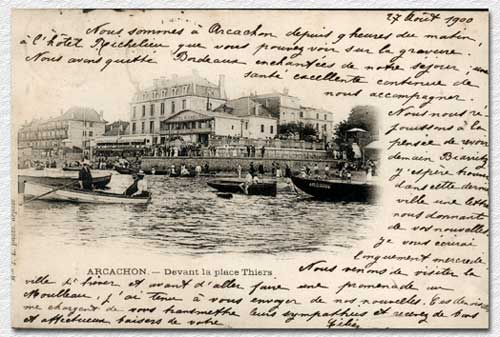 27 Août 1900
Nous sommes à Arcachon depuis 9 heures du matin,
à l'hôtel Richelieu que vous pouvez voir sur la gravure
Nous avons quitté Bordeaux enchantées de notre séjour ; une
santé excellente continue de
nous accompagner.
Nous nous ré-
jouissons à la
pensée de revoir
demain Biarritz
J'espère trouver
dans cette dernière
ville une lettre
nous donnant
de vos nouvelles
Je vous écrirai
longuement mercredi
ARCACHON. — Devant la place Thiers
Nous venons de visiter la
ville d'hiver et avant d'aller faire une promenade au
Moulleau, j'ai tenu à vous envoyer de nos nouvelles. Ces dames
me chargent de vous transmettre leurs sympathies et recevez de bons
et affectueux baisers de votre